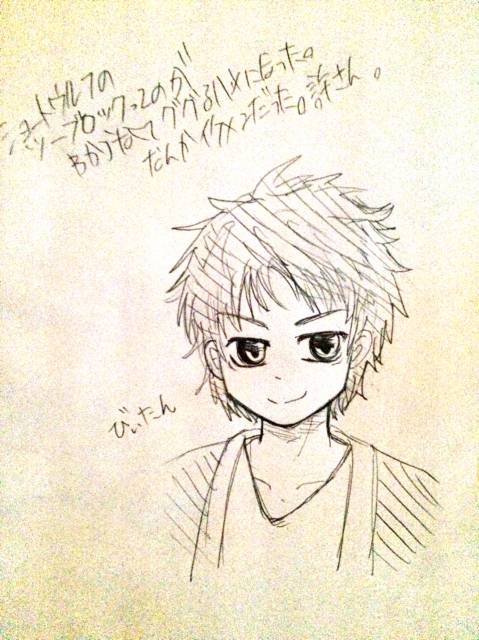 ショートウルフの
ツーブロックってのが
わからなくてググるハメになった。
なんかイケメンだった。許さん。
びぃたん